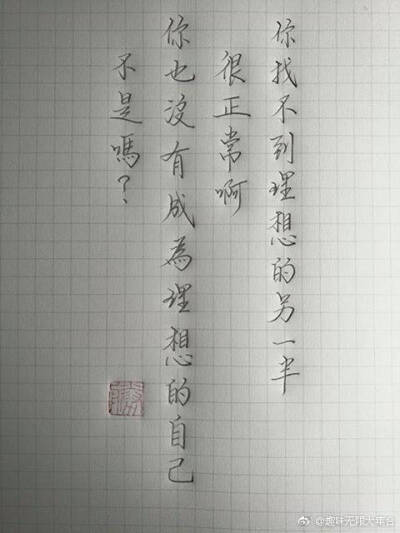 你找不到理想的另一半
很正常啊
你也沒有成為理想的自己
不是嗎？
@趣味无限大年合